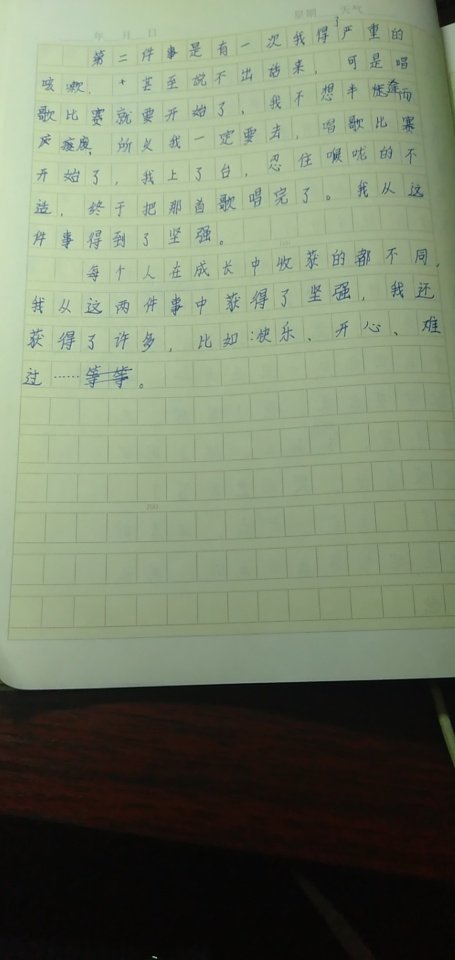 年 月 日 星期 天气
第二件事是有一次我得了严重的
咳嗽,甚至说不出话来,可是唱
歌比赛就要开始了,我不想半途而
废,所以我一定要去,唱歌比赛
开始了,我上了台,忍住喉咙的不
适,终于把那首歌唱完了。我从这
件事得到了坚强。
每个人在成长中收获的都不同,
我从这两件事中获得了坚强,我还
获得了许多,比如:快乐、开心、难
过……等等。